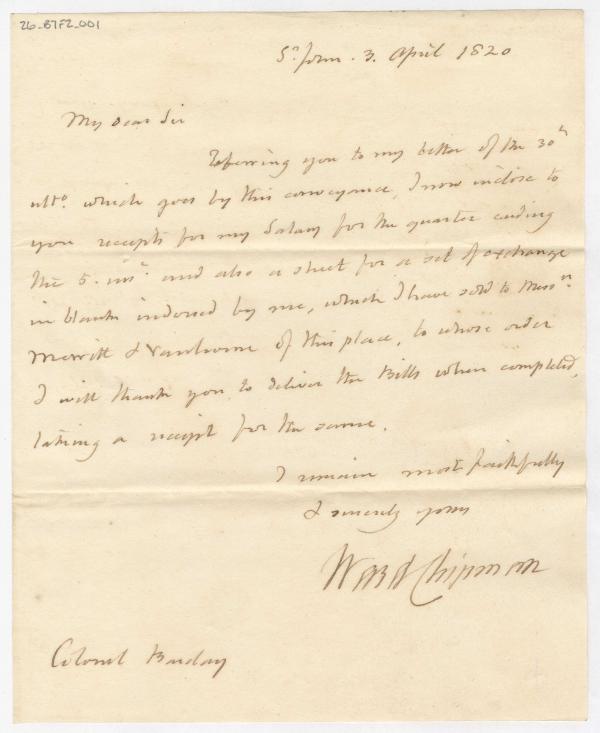 26-B7F2-001
Sᵗ John. 3. April 1820
My dear Sir
Referring you to my letter of the 30ʰ
ultᵒ. which goes by this conveyance, I now inclose to
you receipts for my Salary for the quarter ending
the 5. insᵗ. and also a sheet for a set of exchange
in blank indorsed by me, which I have sold to Messʳˢ
Merritt & Vanhorne of this place, to whose order
I will thank you to deliver the Bills when completed,
taking a receipt for the same.
I remain most faithfully
& sincerely yours
Ward Chipman
Colonel Barclay